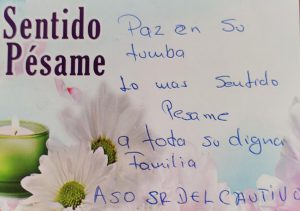 Sentido
Pésame
Paz en su
tumba
Lo mas sentido
Pesame
a toda su digna
Familia
ASO SR DEL CAUTIVO